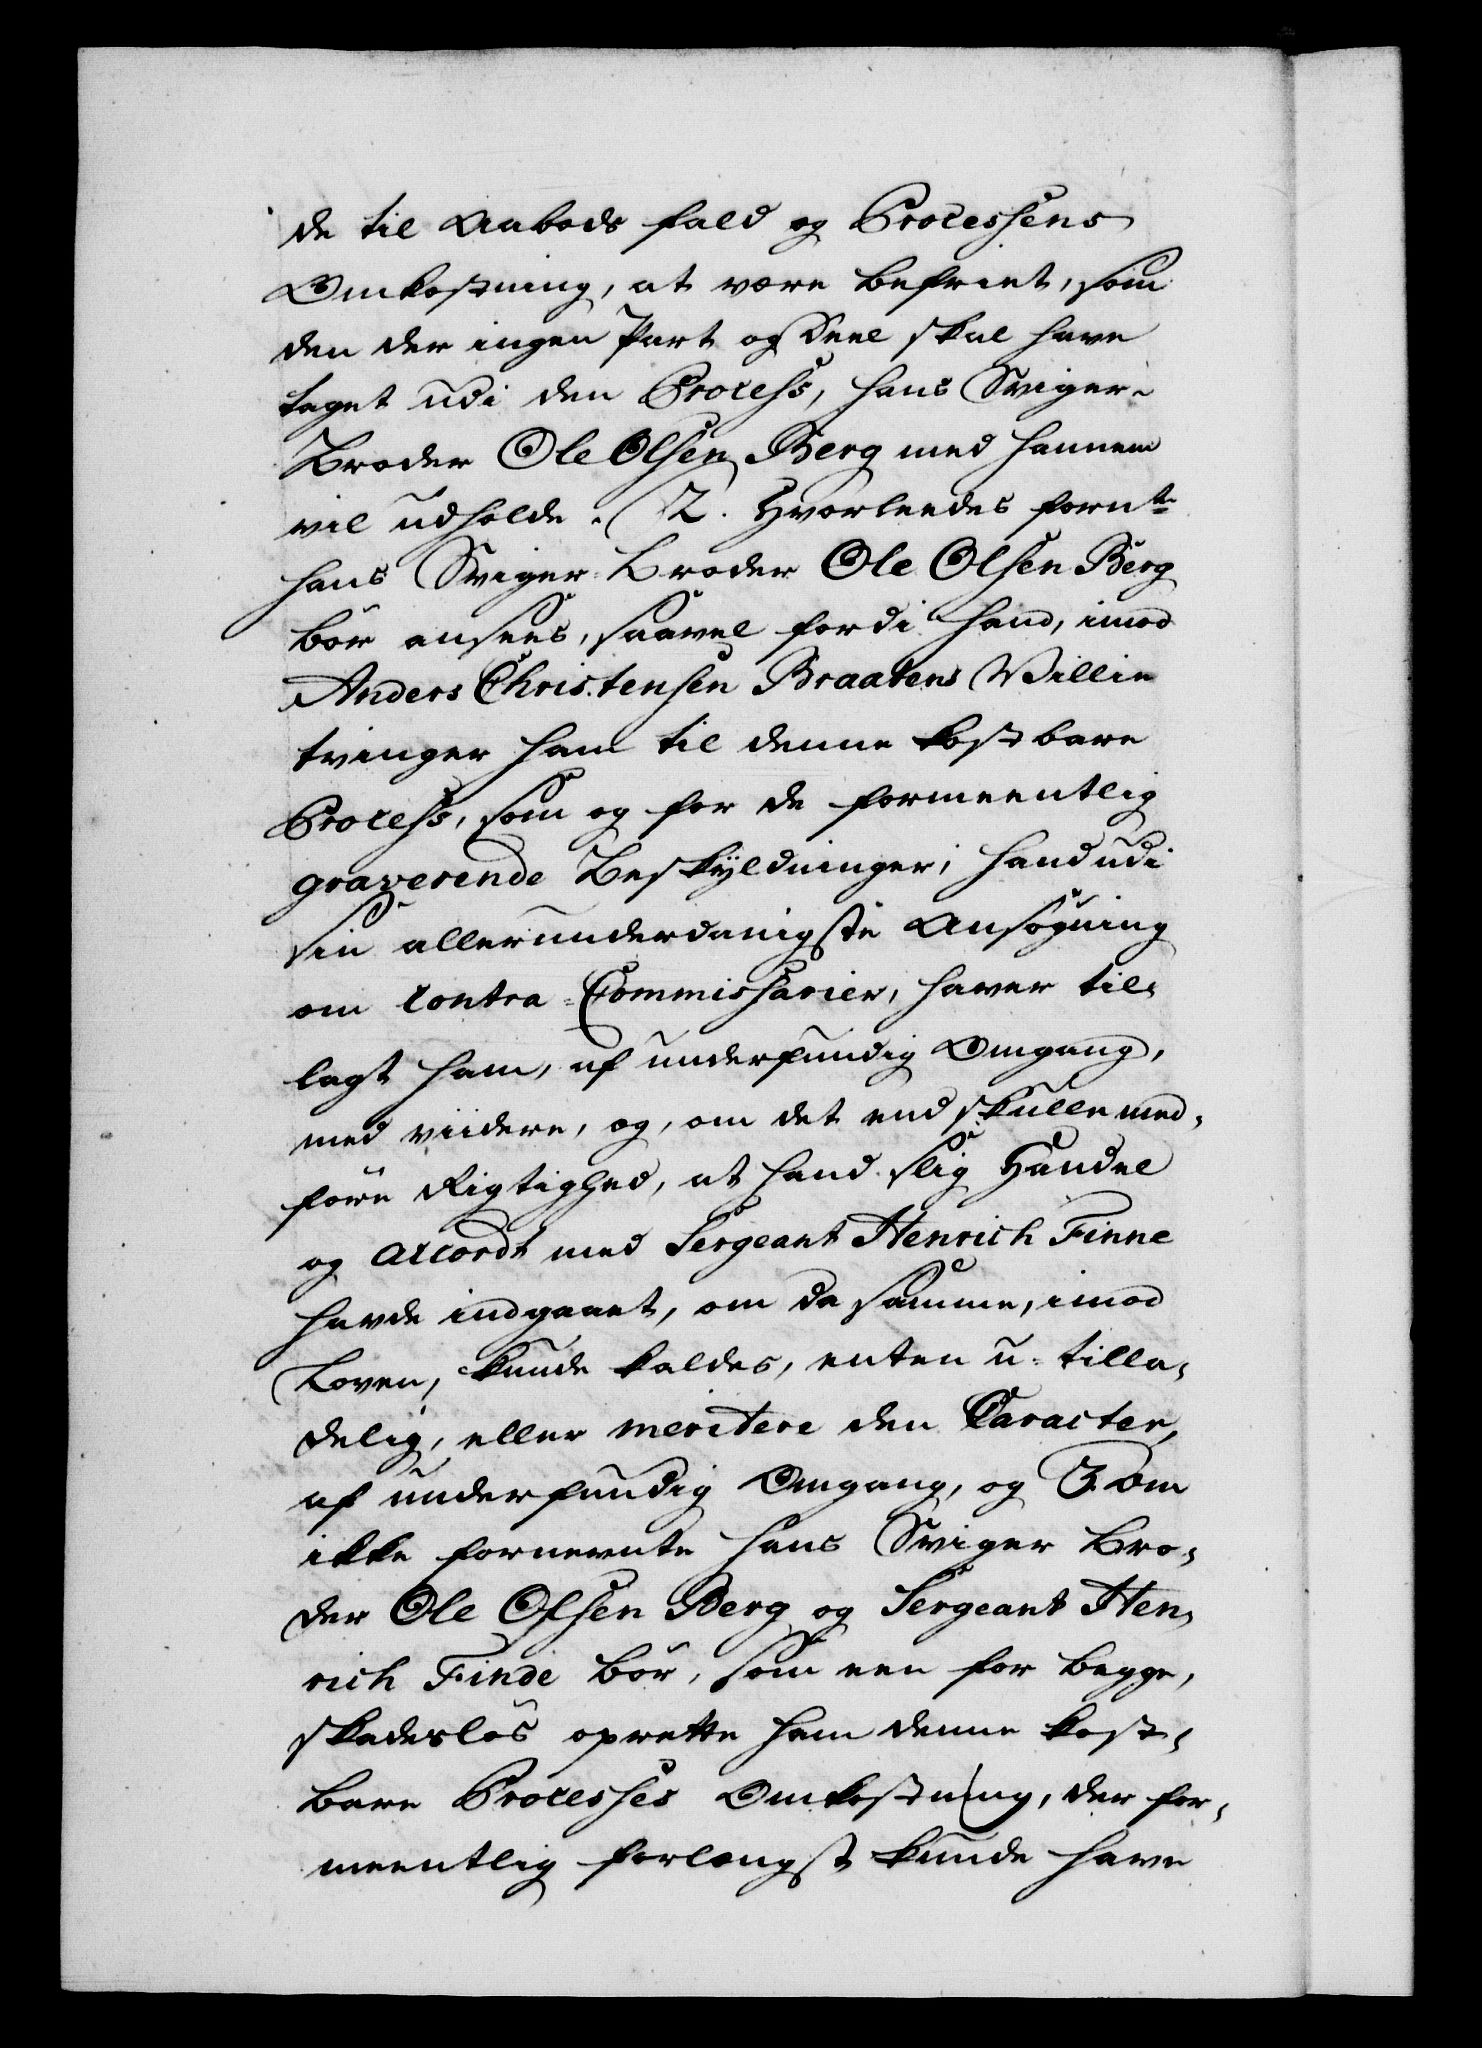 de til Aabods fald og Processens
Omkostning, at være befriet, som
den der ingen Part og Deel skal have
taget udi den Process, hans Sviger-
Broder Ole Olsen Berg med hannem
vil udholde. 2. Hvorleedes fornte
hans Sviger-Broder Ole Olsen Berg
bör ansees, saavel fordi hand, imod
Anders Christensen Braatens Villie
tvinger ham til denne kostbare
Process, som og for de formeentlig
graverende Beskÿldninger, hand udi
sin allerunderdanigste Ansøgning
om Contra-Commissarier, haver til-
lagt ham, af underfundig Omgang,
med viidere, og, om det end skulle med-
føre Rigtighed, at hand slig Handel
og Accordt med Sergeant Henrich Finne
havde indgaaet, om da samme, imod
Loven, kunde kaldes, enten u-tilla-
delig, eller meritere den Caracter,
af underfundig Omgang, og 3. om
ikke fornevnte hans Sviger Bro-
der Ole Olsen Berg og Sergeant Hen-
rich Finde bör, som een for begge,
skadeslös oprette ham denne kost-
bare Processes Omkostning, der for-
meentlig forlængst kunde have